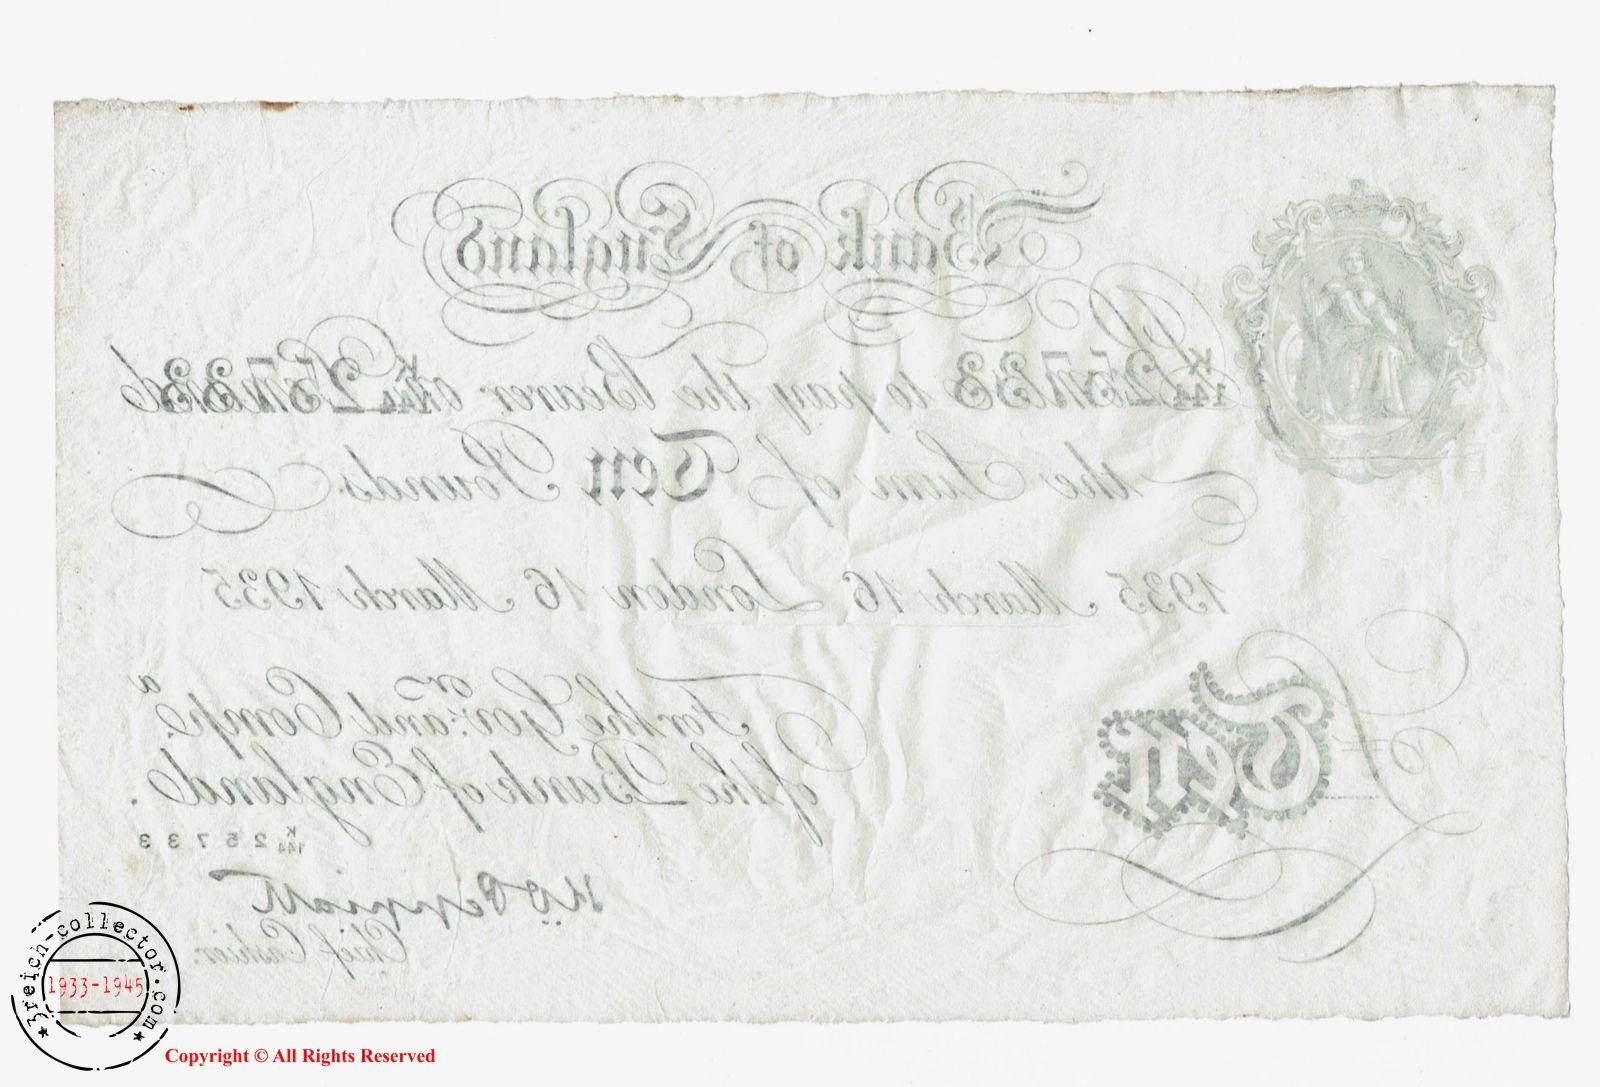 Bank of England
K/144 25733 to pay the Bearer on K/144 25733
the Sum of Ten Pounds.
1935 March 16 London 16 March 1935
For the Govr. and Compa.
of the Bank of England.
K/144 25733
Ten
Chief Cashier.
3reich-collector.com
1933-1945
Copyright © All Rights Reserved